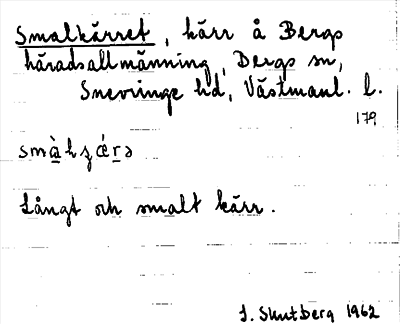 Smalkärret, kärr å Bergs
häradsallmänning, Bergs sn,
Snevringe hd, Västmanl. l.
179
Långt och smalt kärr.
1962